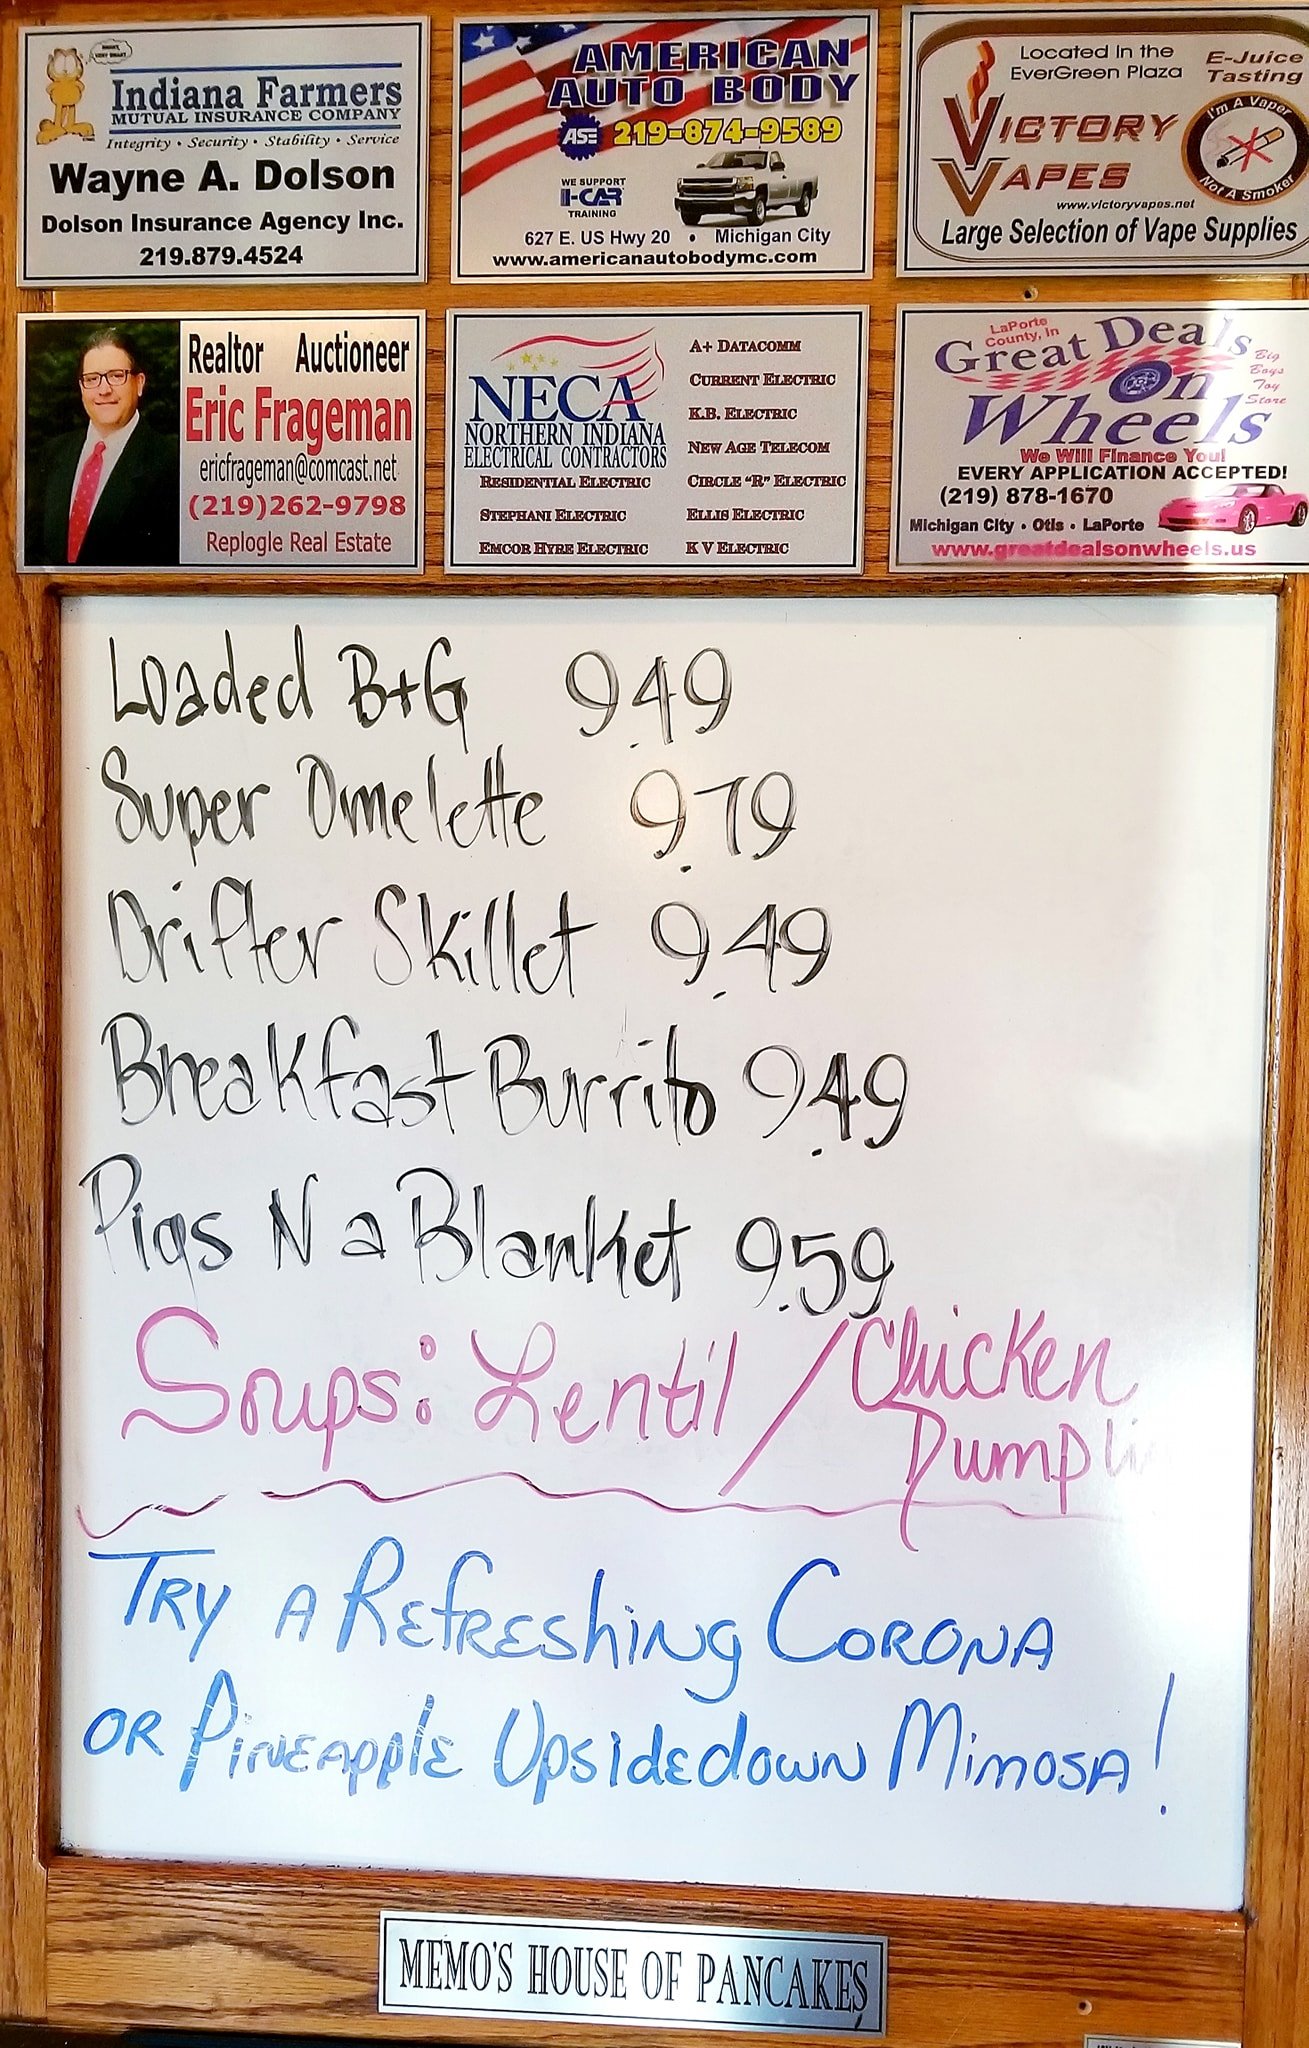 Indiana Farmers
MUTUAL INSURANCE COMPANY
Integrity • Security • Stability • Service
Wayne A. Dolson
Dolson Insurance Agency Inc.
219.879.4524
AMERICAN
AUTO BODY
ASE 219-874-9589
WE SUPPORT
I-CAR
TRAINING
627 E. US Hwy 20 • Michigan City
www.americanautobodymc.com
Located in the
EverGreen Plaza
E-Juice
Tasting
VICTORY
VAPES
I'm A Vaper
Not A Smoker
www.victoryvapes.net
Large Selection of Vape Supplies
Realtor Auctioneer
Eric Frageman
ericfrageman@comcast.net
(219)262-9798
Replogle Real Estate
NECA
NORTHERN INDIANA
ELECTRICAL CONTRACTORS
RESIDENTIAL ELECTRIC
STEPHANI ELECTRIC
EMCOR HYRE ELECTRIC
A+ DATACOMM
CURRENT ELECTRIC
K.B. ELECTRIC
NEW AGE TELECOM
CIRCLE "R" ELECTRIC
ELLIS ELECTRIC
K V ELECTRIC
LaPorte
County, In
Great Deals
On
Wheels
Big
Boys
Toy
Store
We Will Finance You!
EVERY APPLICATION ACCEPTED!
(219) 878-1670
Michigan City • Otis • LaPorte
www.greatdealsonwheels.us
Loaded B+G 9.49
Super Omelette 9.79
Drifter Skillet 9.49
Breakfast Burrito 9.49
Pigs N a Blanket 9.59
Soups: Lentil / Chicken
Dumplin
TRY A REfREShing CORONA
OR PINEApplE UpsidEdowN MimosA!
MEMO'S HOUSE OF PANCAKES